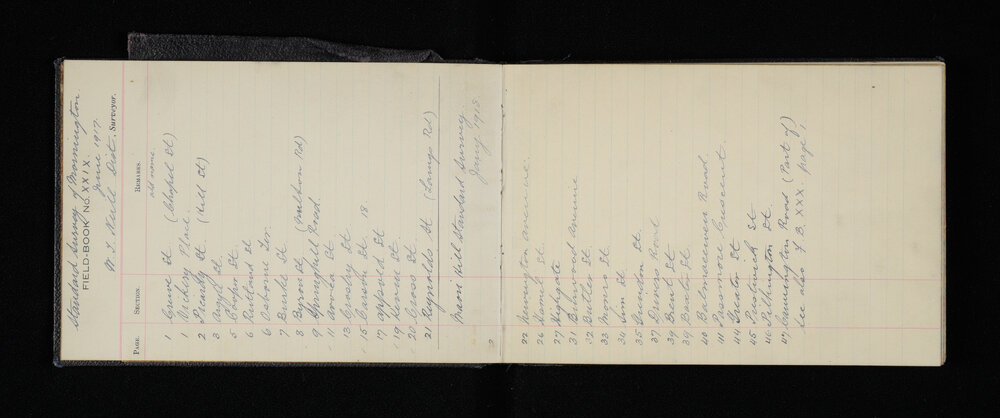 Standard Survey of Mornington
FIELD-BOOK No. XXIX.
June 1917.
W. T. Neill Dist. Surveyor.
PAGE. SECTION. REMARKS.
old name.
1 Lawe St (Chapel St)
1 Vickery Place
2 Picardy St (Hill St)
3 Argyle St
5 Chopin St
6 Rutland St
6 Osborne Ter.
7 Burke St
8 Byron St (Multon Rd)
9 Springhill Road
11 Avoca St
13 Crosby St
15 Carson St 18
17 Appold St
19 Kewe St
20 Cross St
21 Reynolds St (Lamys Rd)
Maori Hill Standard Survey
Jany 1918
22 Newington Avenue
26 Lamb St
27 Highgate
31 Balwood Avenue
32 Butler St
33 Monro St
34 Ann St
35 Grendon St
37 Drivers Road
39 Bent St
39 Barlow St
40 Balmacewen Road
41 Passmore Crescent
44 Greator St
45 Prestwick St
46 Pilkington St
47 Cannington Road (Part of)
See also F.B. XXX. page 1